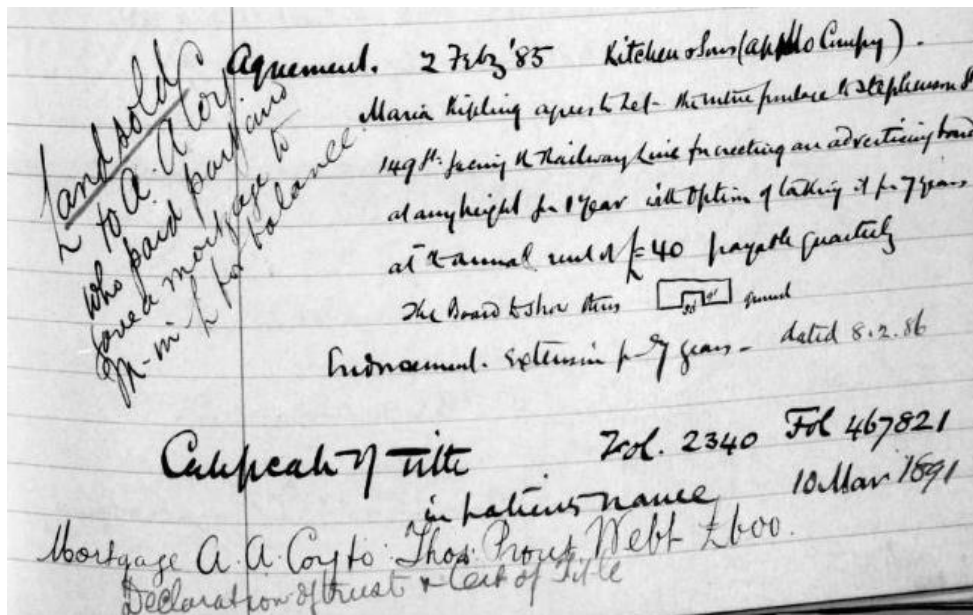 Land sold
to A. A Coy
who paid part and
gave a mortgage to
for balance
Agreement. 2 Feby '85 Kitchen & Sons (Apollo Compy).
Maria Kipling agrees to let the entire frontage to Stephenson St
149 ft. facing the Railway Line for erecting an advertising board
at any height for 1 year with option of taking it for 7 years
at the annual rent of £40 payable quarterly
The Board to show thus ground
Endorsement. Extension for 7 years - dated 8.2.86
Certificate of Title Vol. 2340 Fol 467821
in patient's name 10 Mar 1891
Mortgage A. A. Coy to Thos. Prout Webb £600.
Declaration of trust & Cert of Title